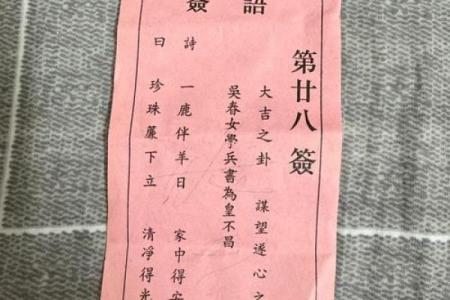 籤語
第廿八簽
大吉之卦 謀望遂心之
吳春女學兵書為皇不昌
詩曰
一鹿伴羊日 家中得安
珍珠簾下立 清凈得光